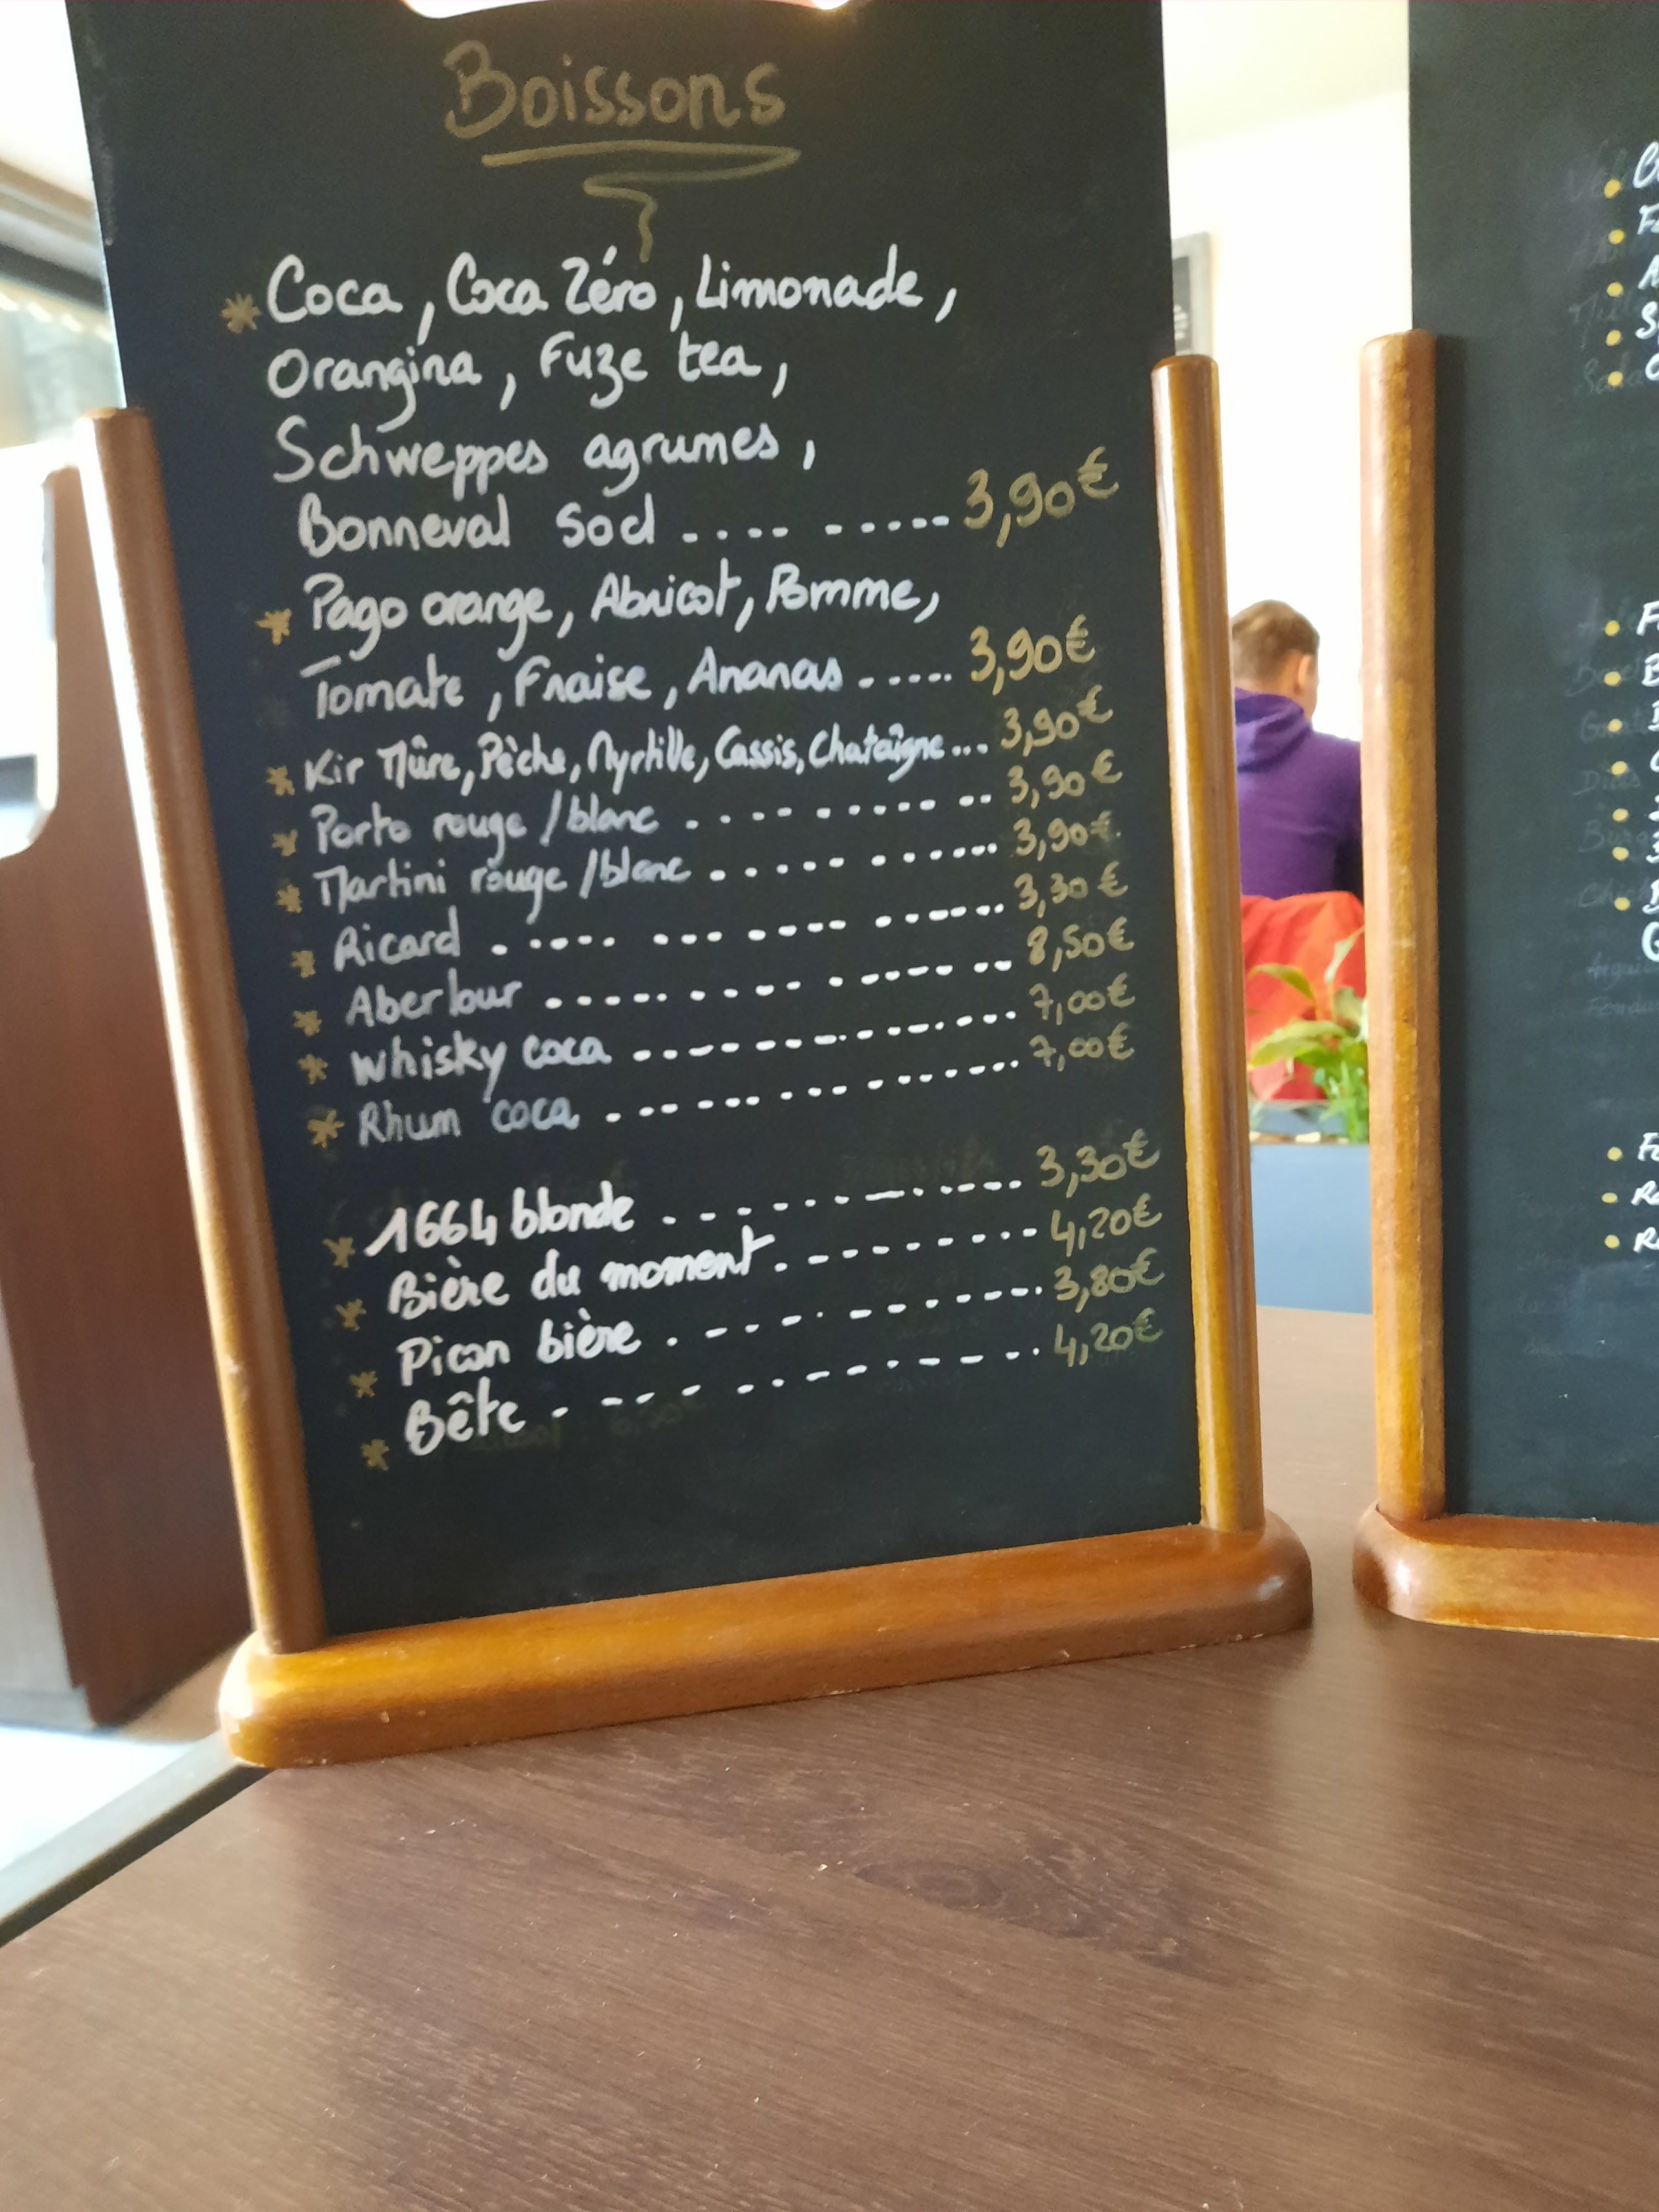 Boissons
* Coca, Coca Zéro, Limonade,
Orangina, Fuze tea,
Schweppes agrumes,
Bonneval sod .... ..... 3,90€
* Pago orange, Abricot, Pomme,
Tomate, Fraise, Ananas ..... 3,90€
* Kir Mûre, Pèche, Myrtille, Cassis, Chataîgne... 3,90€
* Porto rouge/blanc .... ..... .. 3,90€
* Martini rouge/blanc ..... ...... 3,90€
* Ricard ..... ... .... ...... 3,30€
* Aberlour ...... .... ..... .. 8,50€
* Whisky coca ............... 7,00€
* Rhum coca ............... 7,00€
* 1664 blonde ............ 3,30€
* Bière du moment .......... 4,20€
* Picon bière ............. 3,80€
* Bête ............. 4,20€